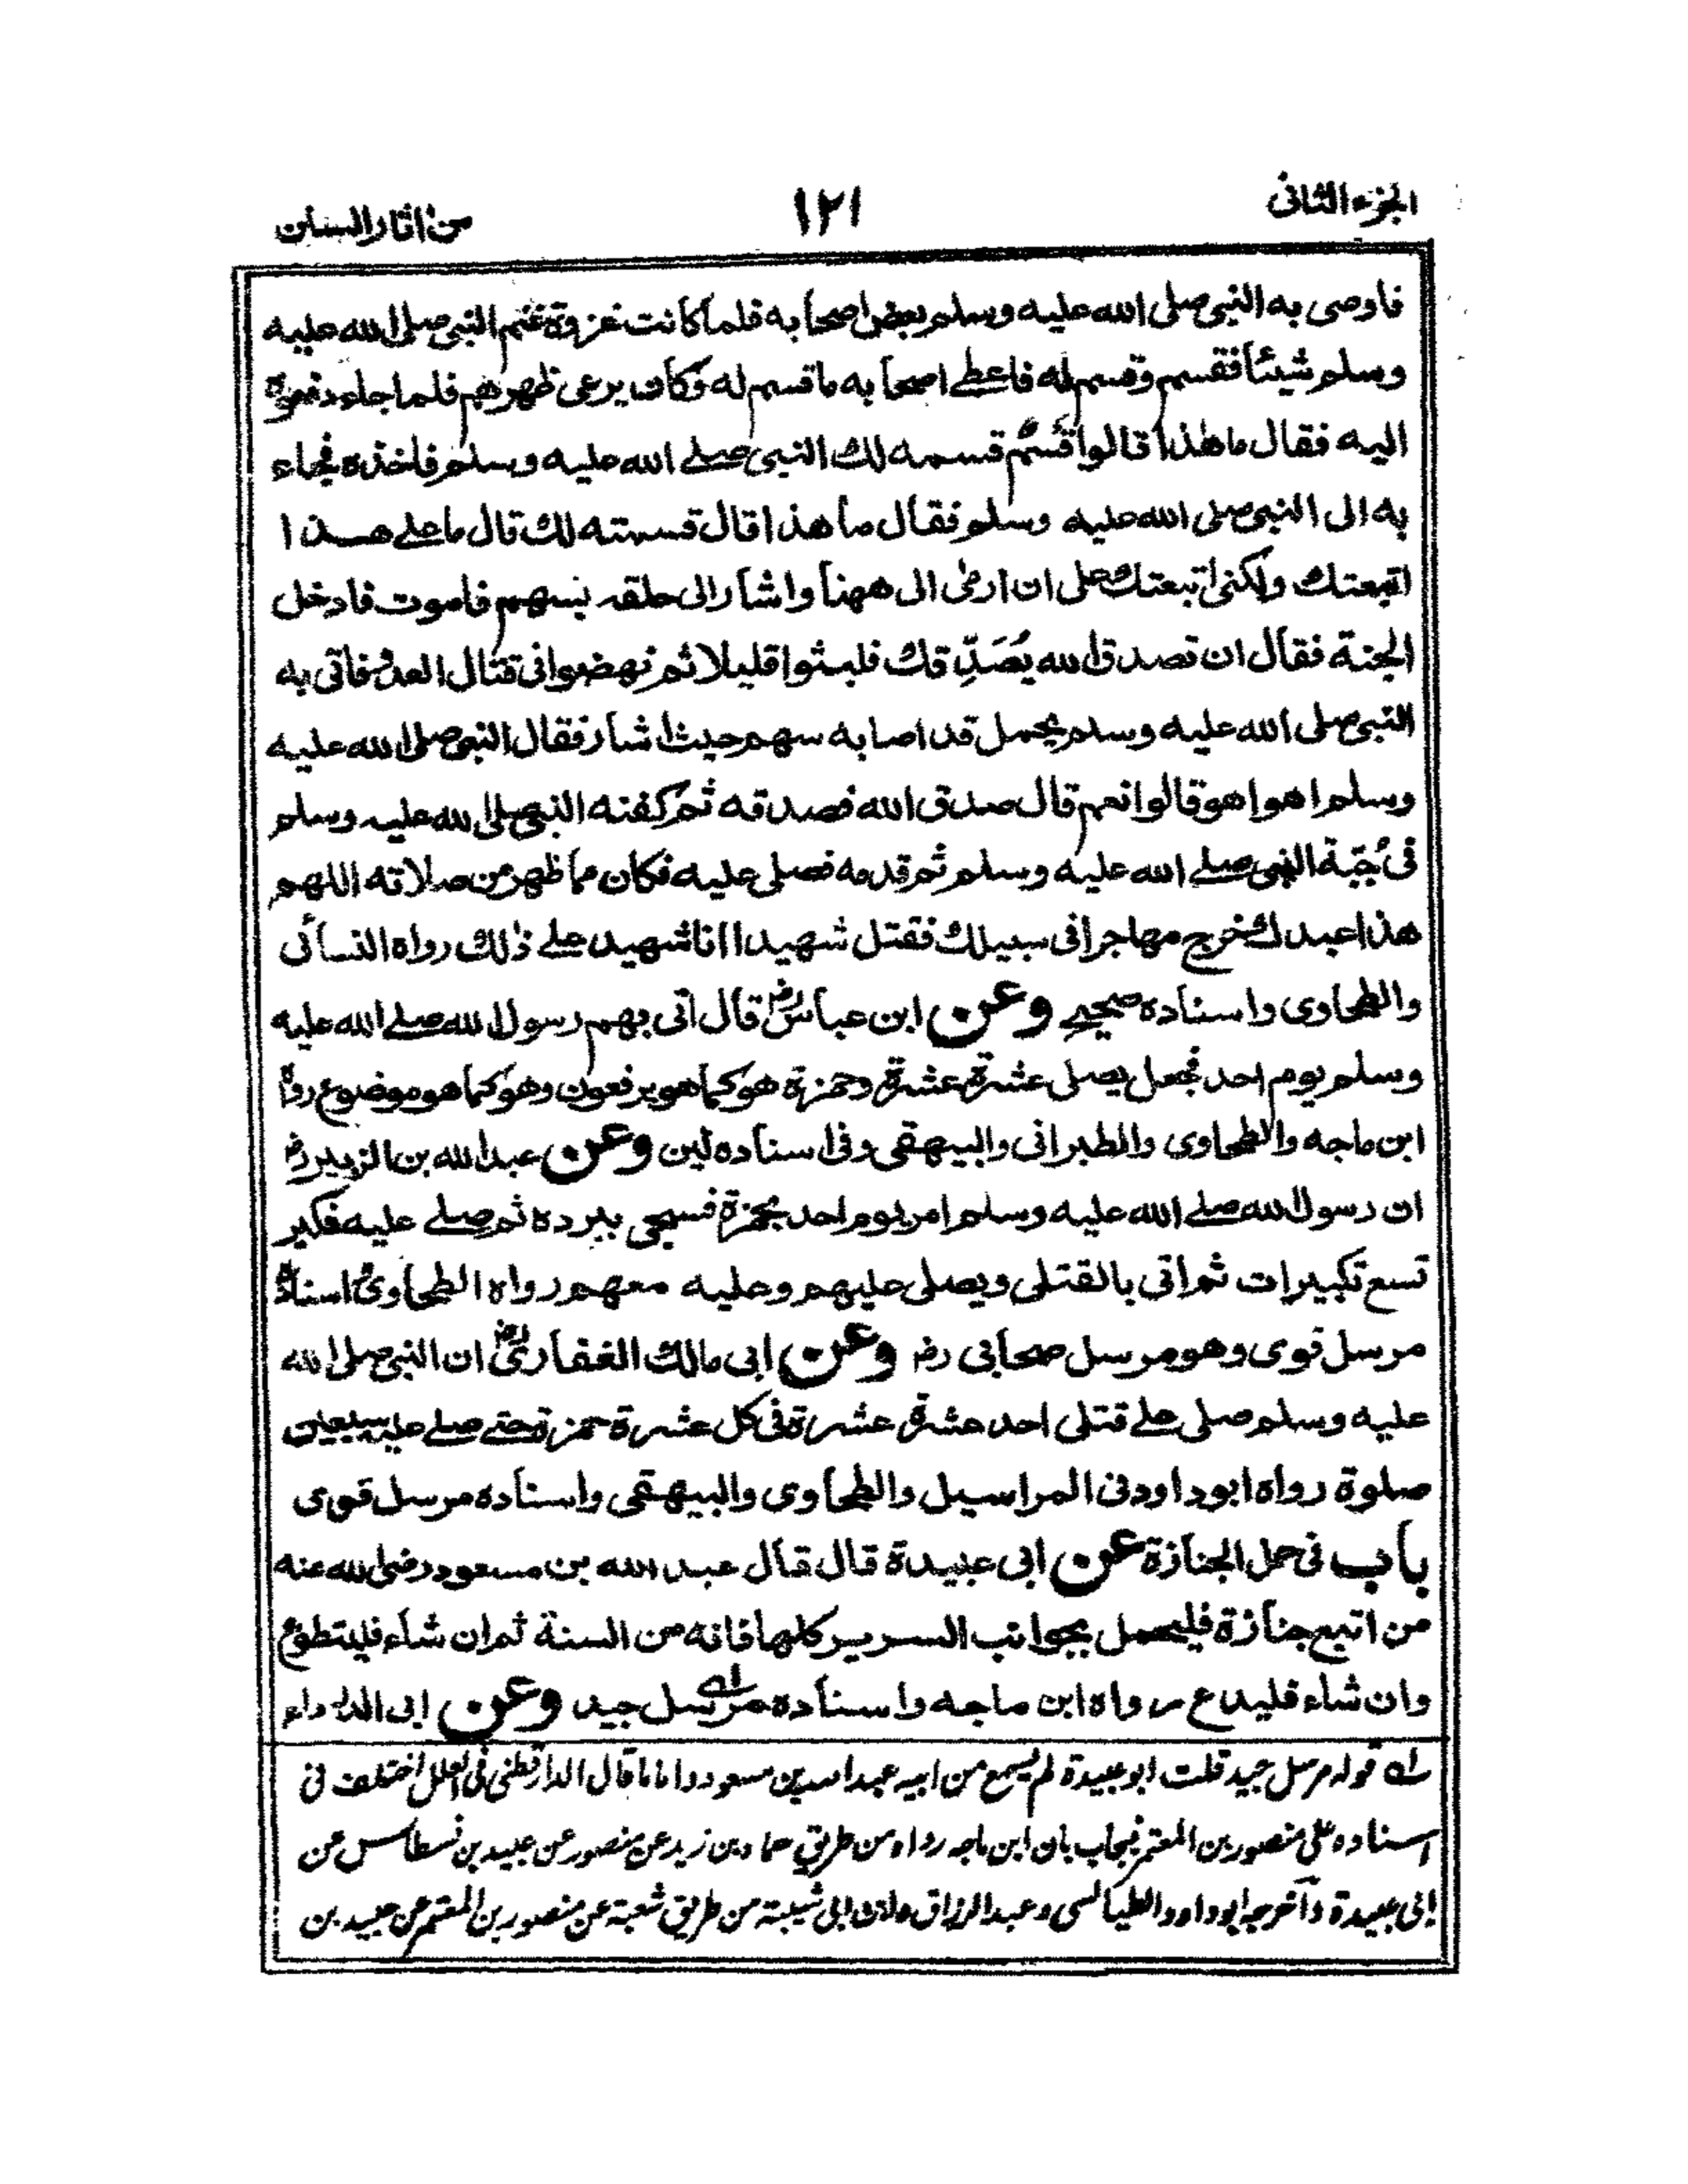 الجزء الثانى
١٢١
من اثار السنن
فاوصى به النبى صلى الله عليه وسلم بعض اصحابه فلما كانت غزوة غنم النبى صلى الله عليه
وسلم شيئا فقسم وقسم له فاعطى اصحابه ما قسم له وكان يرعى ظهرهم فلما جاء دفعوه
اليه فقال ما هذا قالوا قسم قسمه لك النبى صلى الله عليه وسلم فاخذه فجاء
به الى النبى صلى الله عليه وسلم فقال ما هذا قال قسمته لك قال ما على هذا
اتبعتك ولكنى اتبعتك على ان ارمى الى ههنا واشار الى حلقه بسهم فاموت فادخل
الجنة فقال ان تصدق الله يُصَدِّقك فلبثوا قليلا ثم نهضوا فى قتال العدو فاتى به
النبى صلى الله عليه وسلم يحمل قد اصابه سهم حيث اشار فقال النبى صلى الله عليه
وسلم اهو اهو قالوا نعم قال صدق الله فصدقه ثم كفنه النبى صلى الله عليه وسلم
فى جُبّة النبى صلى الله عليه وسلم ثم قدمه فصلى عليه فكان مما ظهر من صلاته اللهم
هذا عبدك خرج مهاجرا فى سبيلك فقتل شهيدا انا شهيد على ذلك رواه النسائى
والطحاوى واسناده صحيح وعن ابن عباس رض قال اتى بهم رسول الله صلى الله عليه
وسلم يوم احد فجعل يصلى عشرة عشرة وحمزة هو كما هو يرفعون وهو كما هو موضوع رواه
ابن ماجه والطحاوى والطبرانى والبيهقى وفى اسناده لين وعن عبد الله بن الزبير رض
ان رسول الله صلى الله عليه وسلم امر يوم احد بحمزة فسجى ببرده ثم صلى عليه فكبر
تسع تكبيرات ثم اتى بالقتلى ويصلى عليهم وعليه معهم رواه الطحاوى واسناده
مرسل قوى وهو مرسل صحابى رض وعن ابى مالك الغفارى رض ان النبى صلى الله
عليه وسلم صلى على قتلى احد عشرة عشرة فى كل عشرة حمزة حتى صلى عليه سبعين
صلوة رواه ابو داود فى المراسيل والطحاوى والبيهقى واسناده مرسل قوى
باب فى حمل الجنازة عن ابى عبيدة قال قال عبد الله بن مسعود رضى الله عنه
من اتبع جنازة فليحمل بجوانب السرير كلها فانه من السنة ثم ان شاء فليتطوع
وان شاء فليدع رواه ابن ماجه واسناده مرسل جيد وعن ابى الدرداء
له قوله مرسل جيد قلت ابو عبيدة لم يسمع من ابيه عبد الله بن مسعود واما ما قال الدارقطنى فى العلل اختلف فى
اسناده على منصور بن المعتمر فيجاب بان ابن ماجه رواه من طريق حماد بن زيد عن منصور عن عبيد بن نسطاس عن
ابى عبيدة وآخرجه ابو داود الطيالسى وعبد الرزاق وابن ابى شيبة من طريق شعبة عن منصور بن المعتمر عن عبيد بن